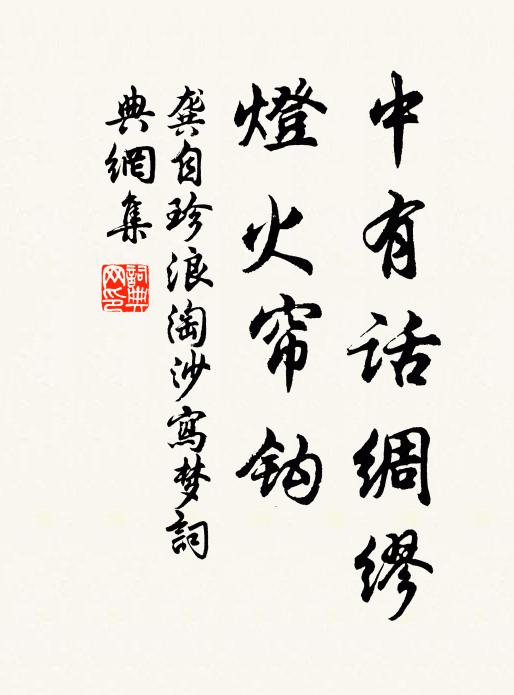 中有话綢繆
燈火帘钩
龔自珍浪淘沙寫梦詞
典網集
詞典网印